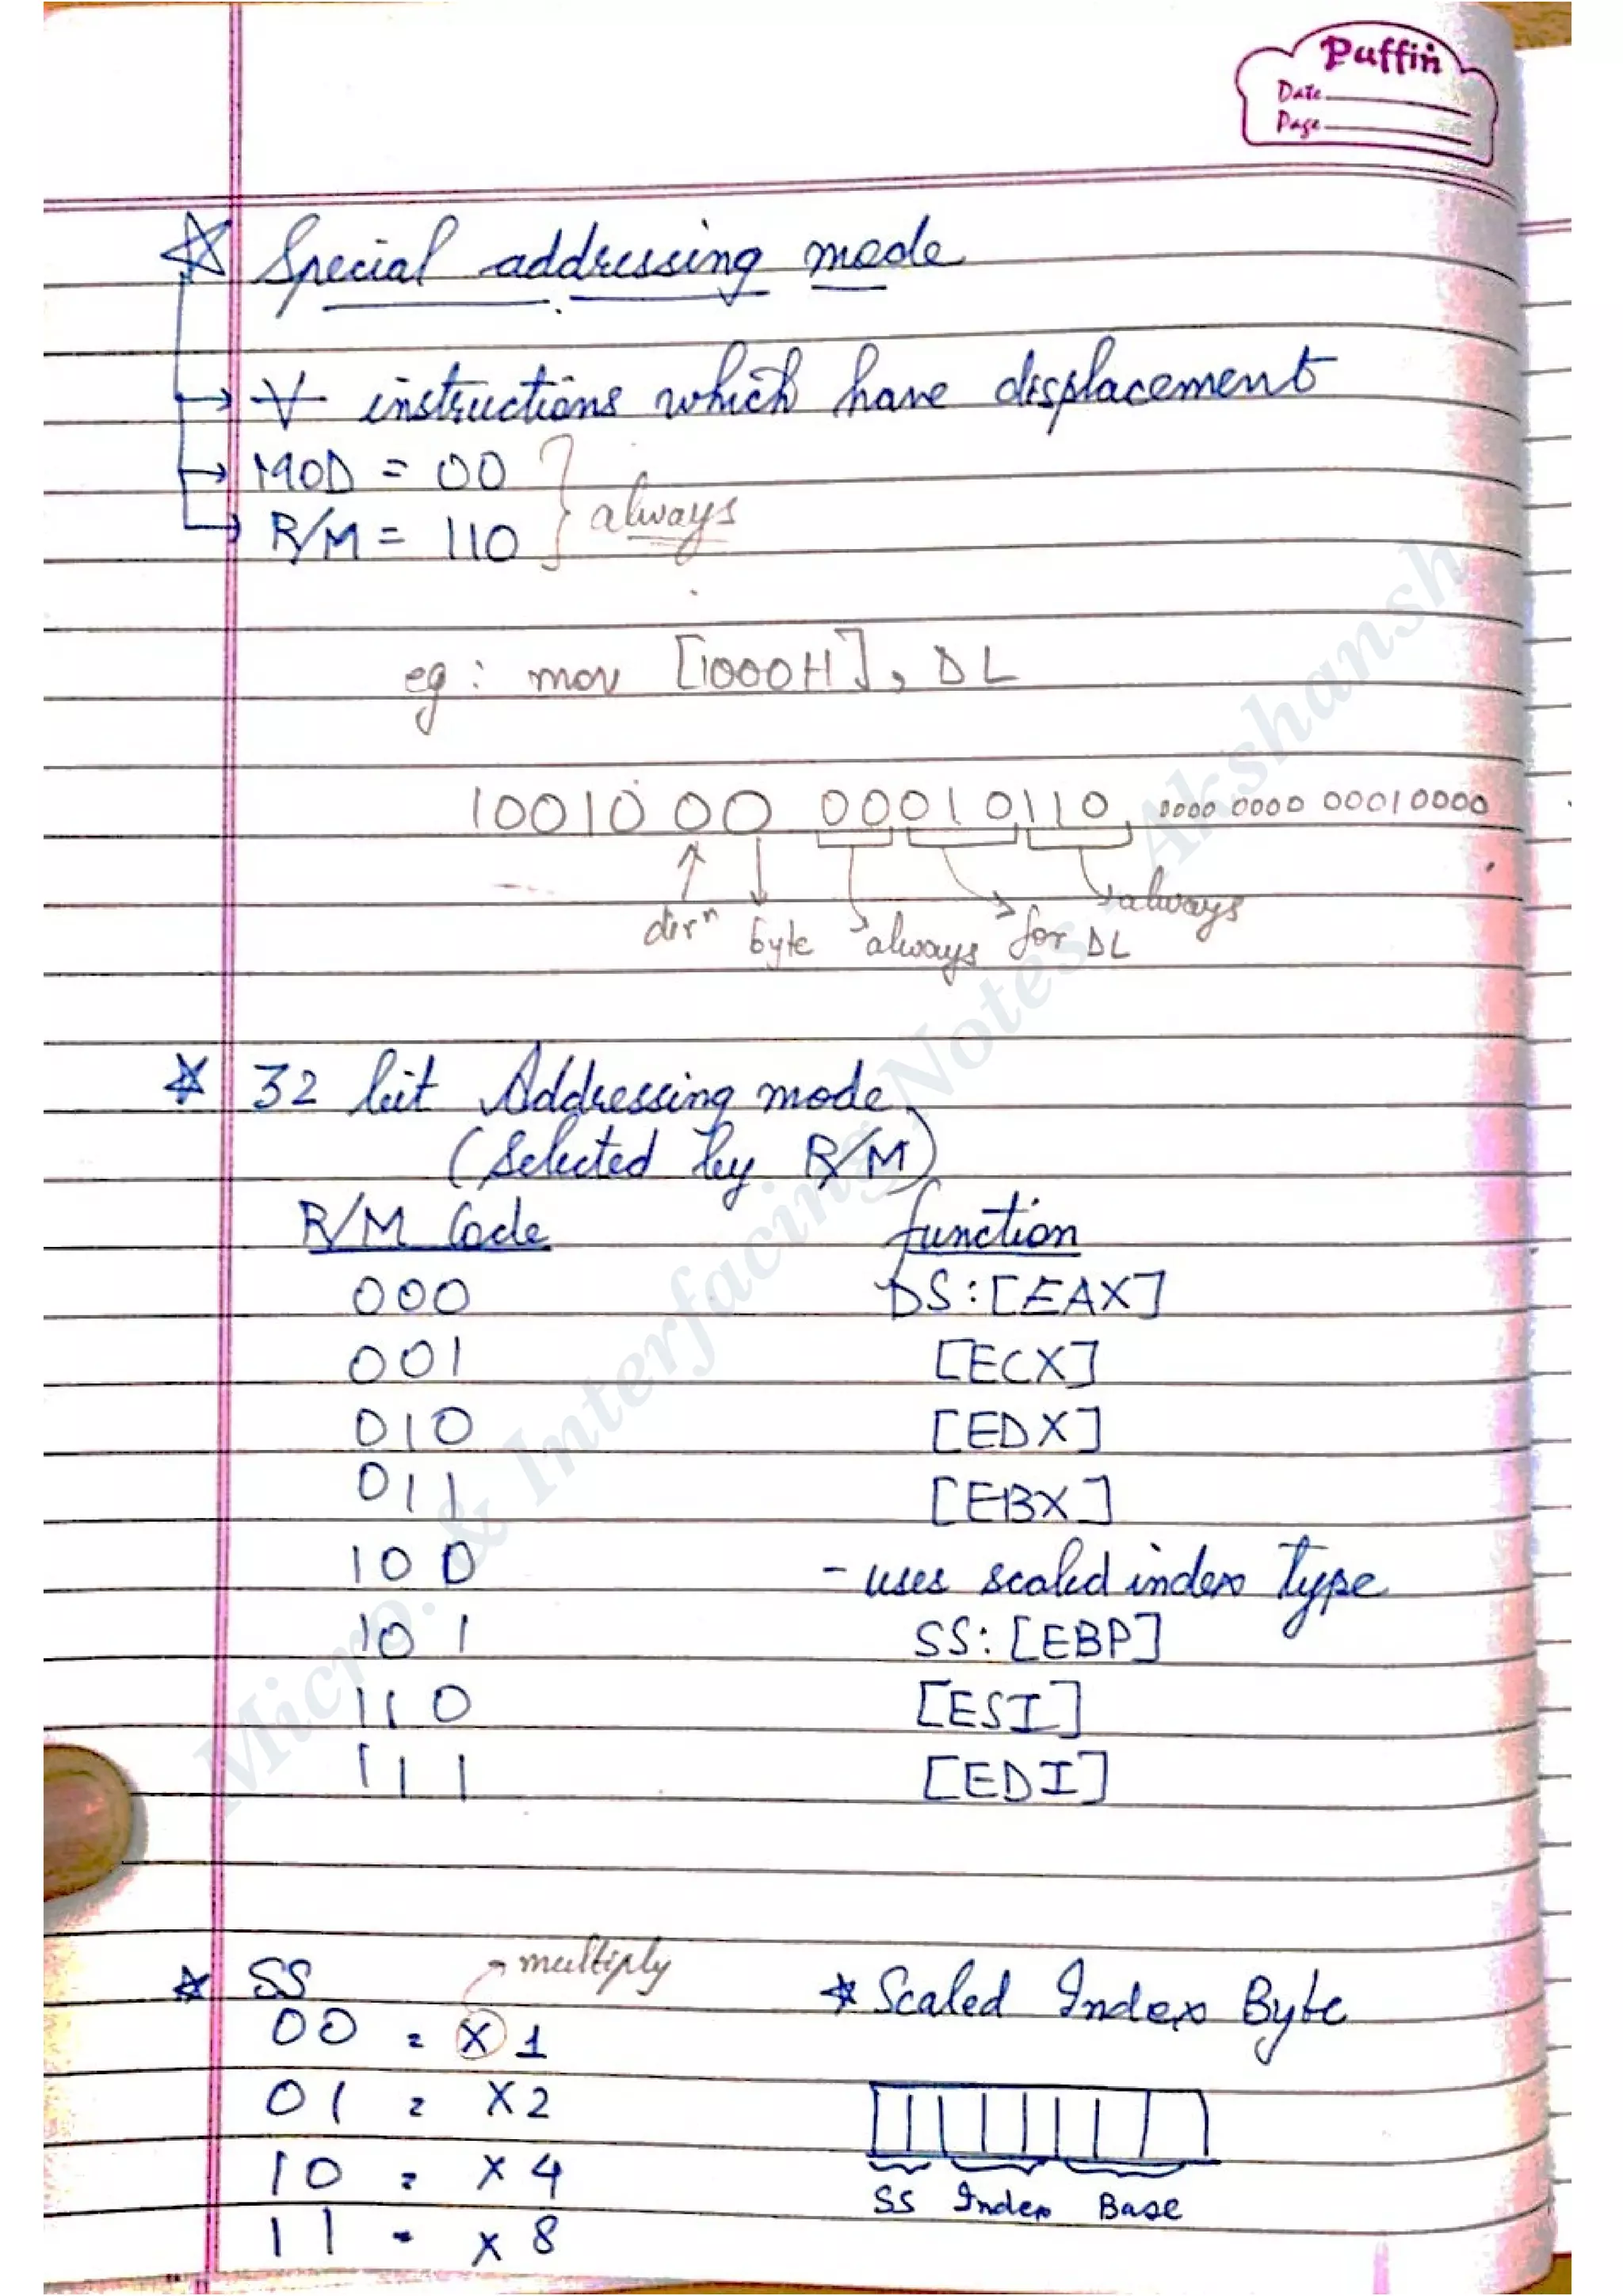 Puffin
Date
Page
☆ Special addressing mode
→ ∀ instructions which have displacement
→ MOD = 00
→ R/M = 110 } always
eg: mov [1000H], DL
1001000 00010110 0000 0000 00010000
dirⁿ byte always for DL always
* 32 bit Addressing mode
(Selected by R/M)
R/M Code function
000 DS:[EAX]
001 [ECX]
010 [EDX]
011 [EBX]
100 - uses scaled index type
101 SS:[EBP]
110 [ESI]
111 [EDI]
* SS → multiply
00 = ×1
01 = ×2
10 = ×4
11 = ×8
* Scaled Index Byte
SS Index Base
Micro. & Interfacing Notes - Akshansh